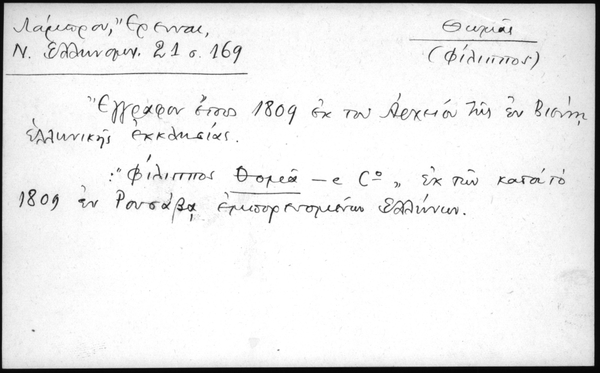 Λάμπρου, Ἔρευναι,
Θωμᾶς
Ν. Ἑλληνομν. 21 σ. 169
(Φίλιππος)
Ἔγγραφον ἔτους 1809 ἐκ τοῦ Ἀρχείου τῆς ἐν Βιέννῃ
ἑλληνικῆς ἐκκλησίας.
:" Φίλιππος Θομᾶ – e Cº „ ἐκ τῶν κατὰ τὸ
1809 ἐν Ρουσάβᾳ ἐμπορευομένων Ἑλλήνων.